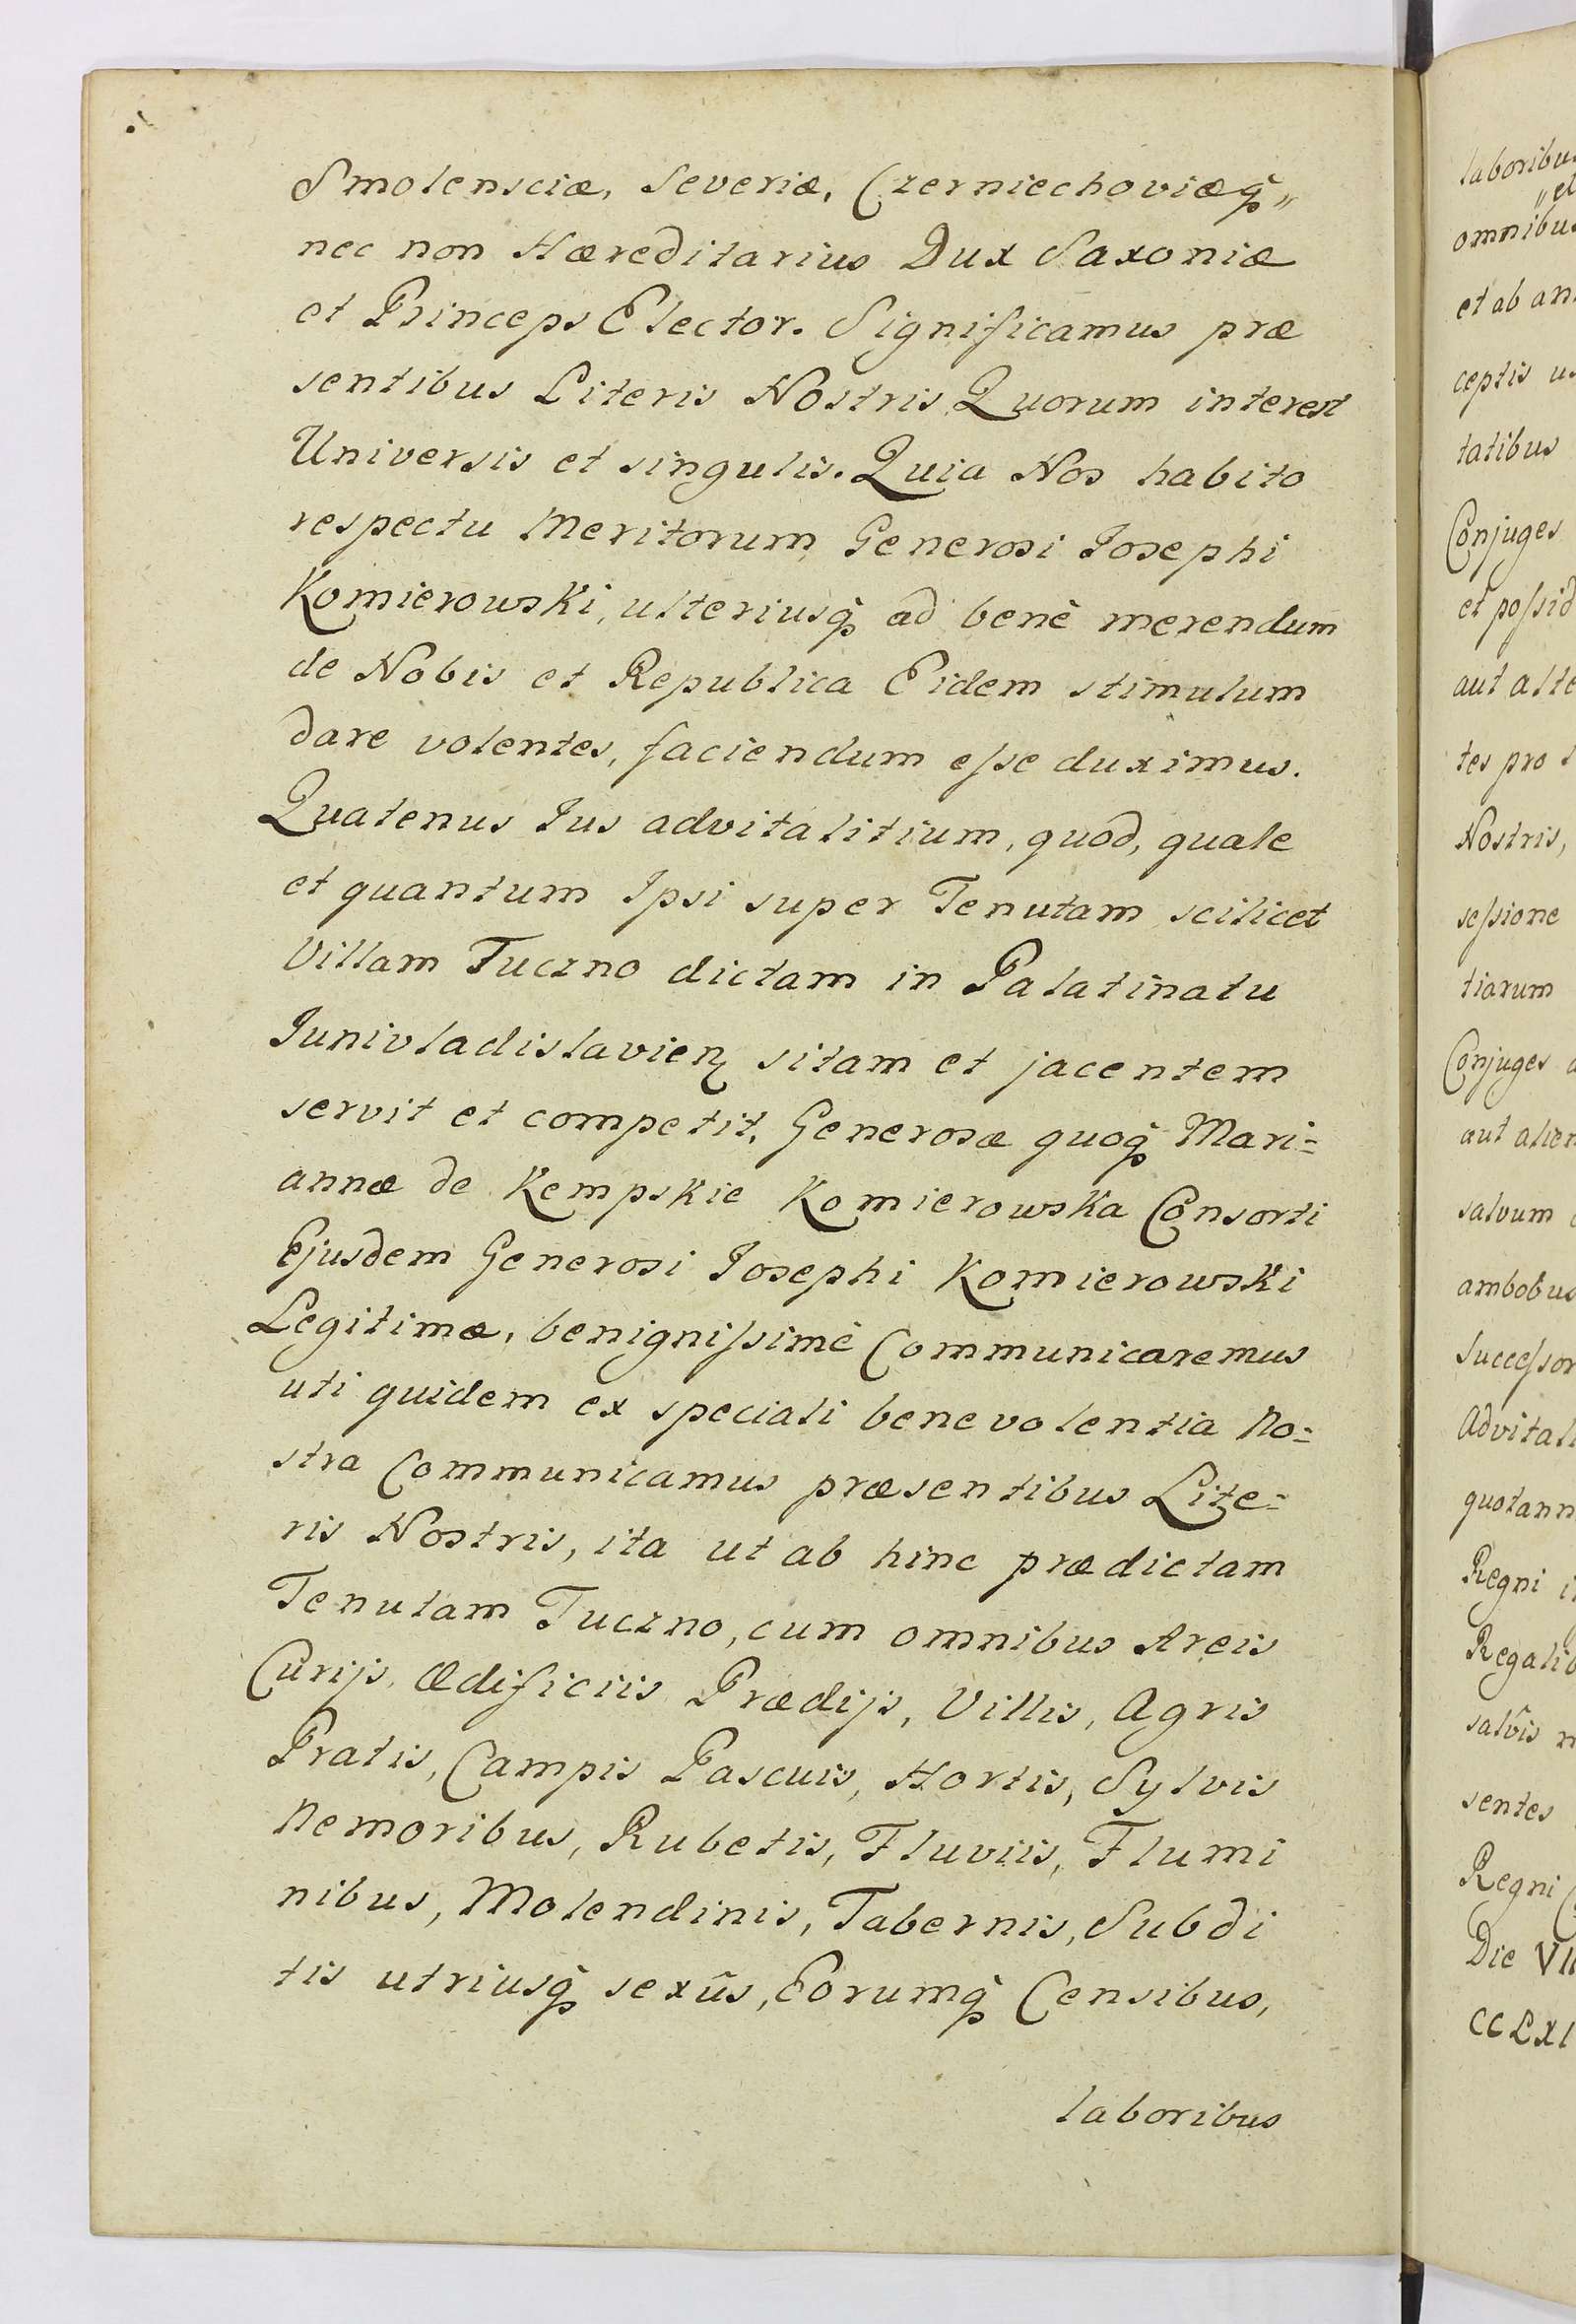 Smolensciæ, Severiæ, Czerniechoviæq̃„
nec non Hæreditarius Dux Saxoniæ
et Princeps Elector. Significamus præ
sentibus Literis Nostris Quorum interest
Universis et singulis. Quia Nos habito
respectu Meritorum Generosi Josephi
Komierowski, ulteriusq̃ ad benè merendum
de Nobis et Republica Eidem stimulum
dare volentes, faciendum eſse duximus.
Quatenus Jus advitalitium, quod, quale
et quantum Ipsi super Tenutam scilicet
Villam Tuczno dictam in Palatinatu
Junivladislavien̄ sitam et jacentem
servit et competit, Generosæ quoq̃ Mari=
annæ de Kempskie Komierowska Consorti
Ejusdem Generosi Josephi Komierowski
Legitimæ, benigniſsimè Communicaremus
uti quidem ex speciali benevolentia No=
stra Communicamus præsentibus Lite=
ris Nostris, ita ut ab hinc prædictam
Tenutam Tuczno, cum omnibus Areis
Curijs, Ædificiis Prædijs, Villis, Agris
Pratis, Campis Pascuis, Hortis, Sylvis
Nemoribus, Rubetis, Fluviis, Flumi
nibus, Molendinis, Tabernis, Subdi
tis utriusq̃ sexûs, Eorumq̃ Censibus,
laboribus
laboribus
„et
omnibus
et ab an
ceptis u
tatibus
Conjuges
et poſsid
aut alte
tes pro
Nostris,
seſsione
tiarum
Conjuges a
aut alien
salvum
ambobus
Succeſsor
Advitali
quotann
Regni i
Regalib
salvîs n
sentes
Regni
Die VII
CCLXI